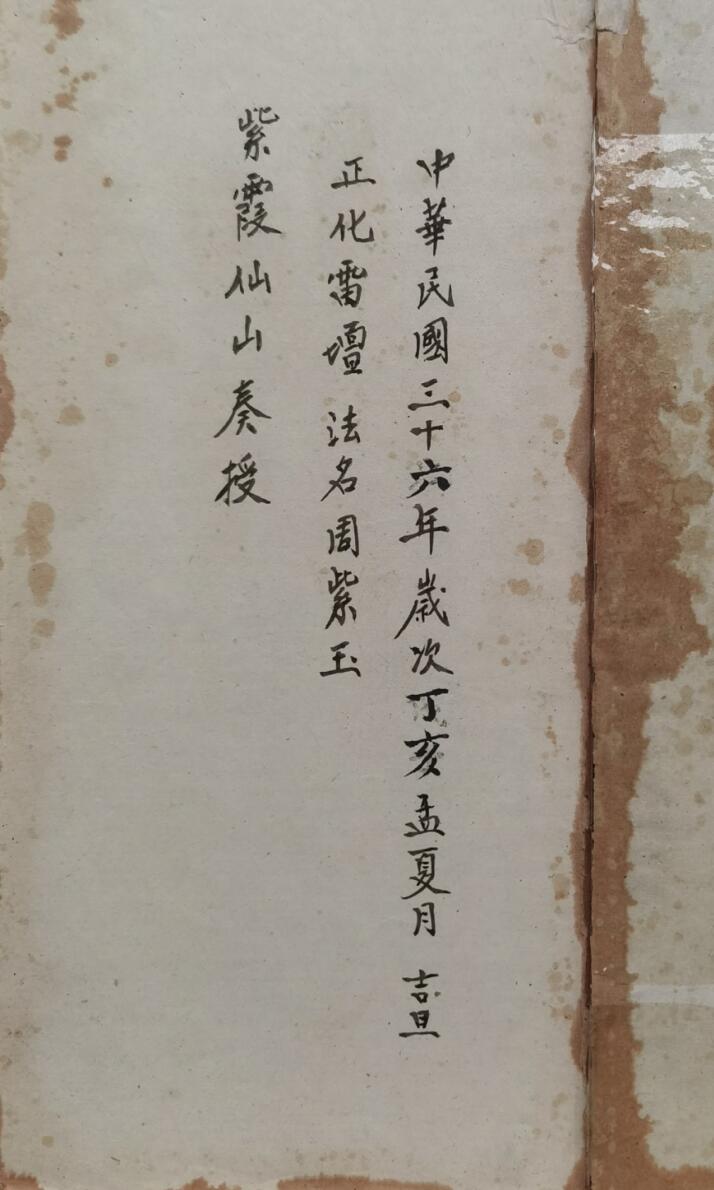 中華民國三十六年歲次丁亥孟夏月 吉旦
正化雷壇 法名周紫玉
紫霞仙山奏授